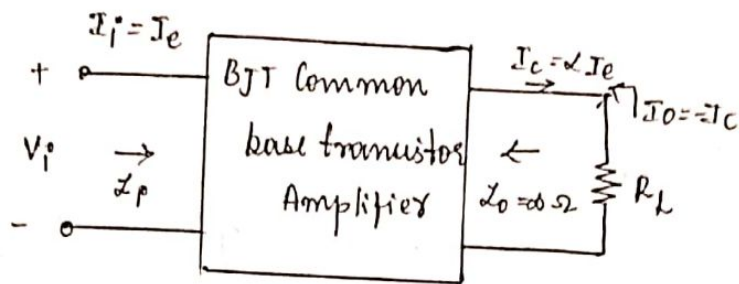 Ii = Ie
+
BJT Common
base transistor
Amplifier
Ic = αIe
Io = -Ic
Vi
Zi
Zo = ∞Ω
RL
-